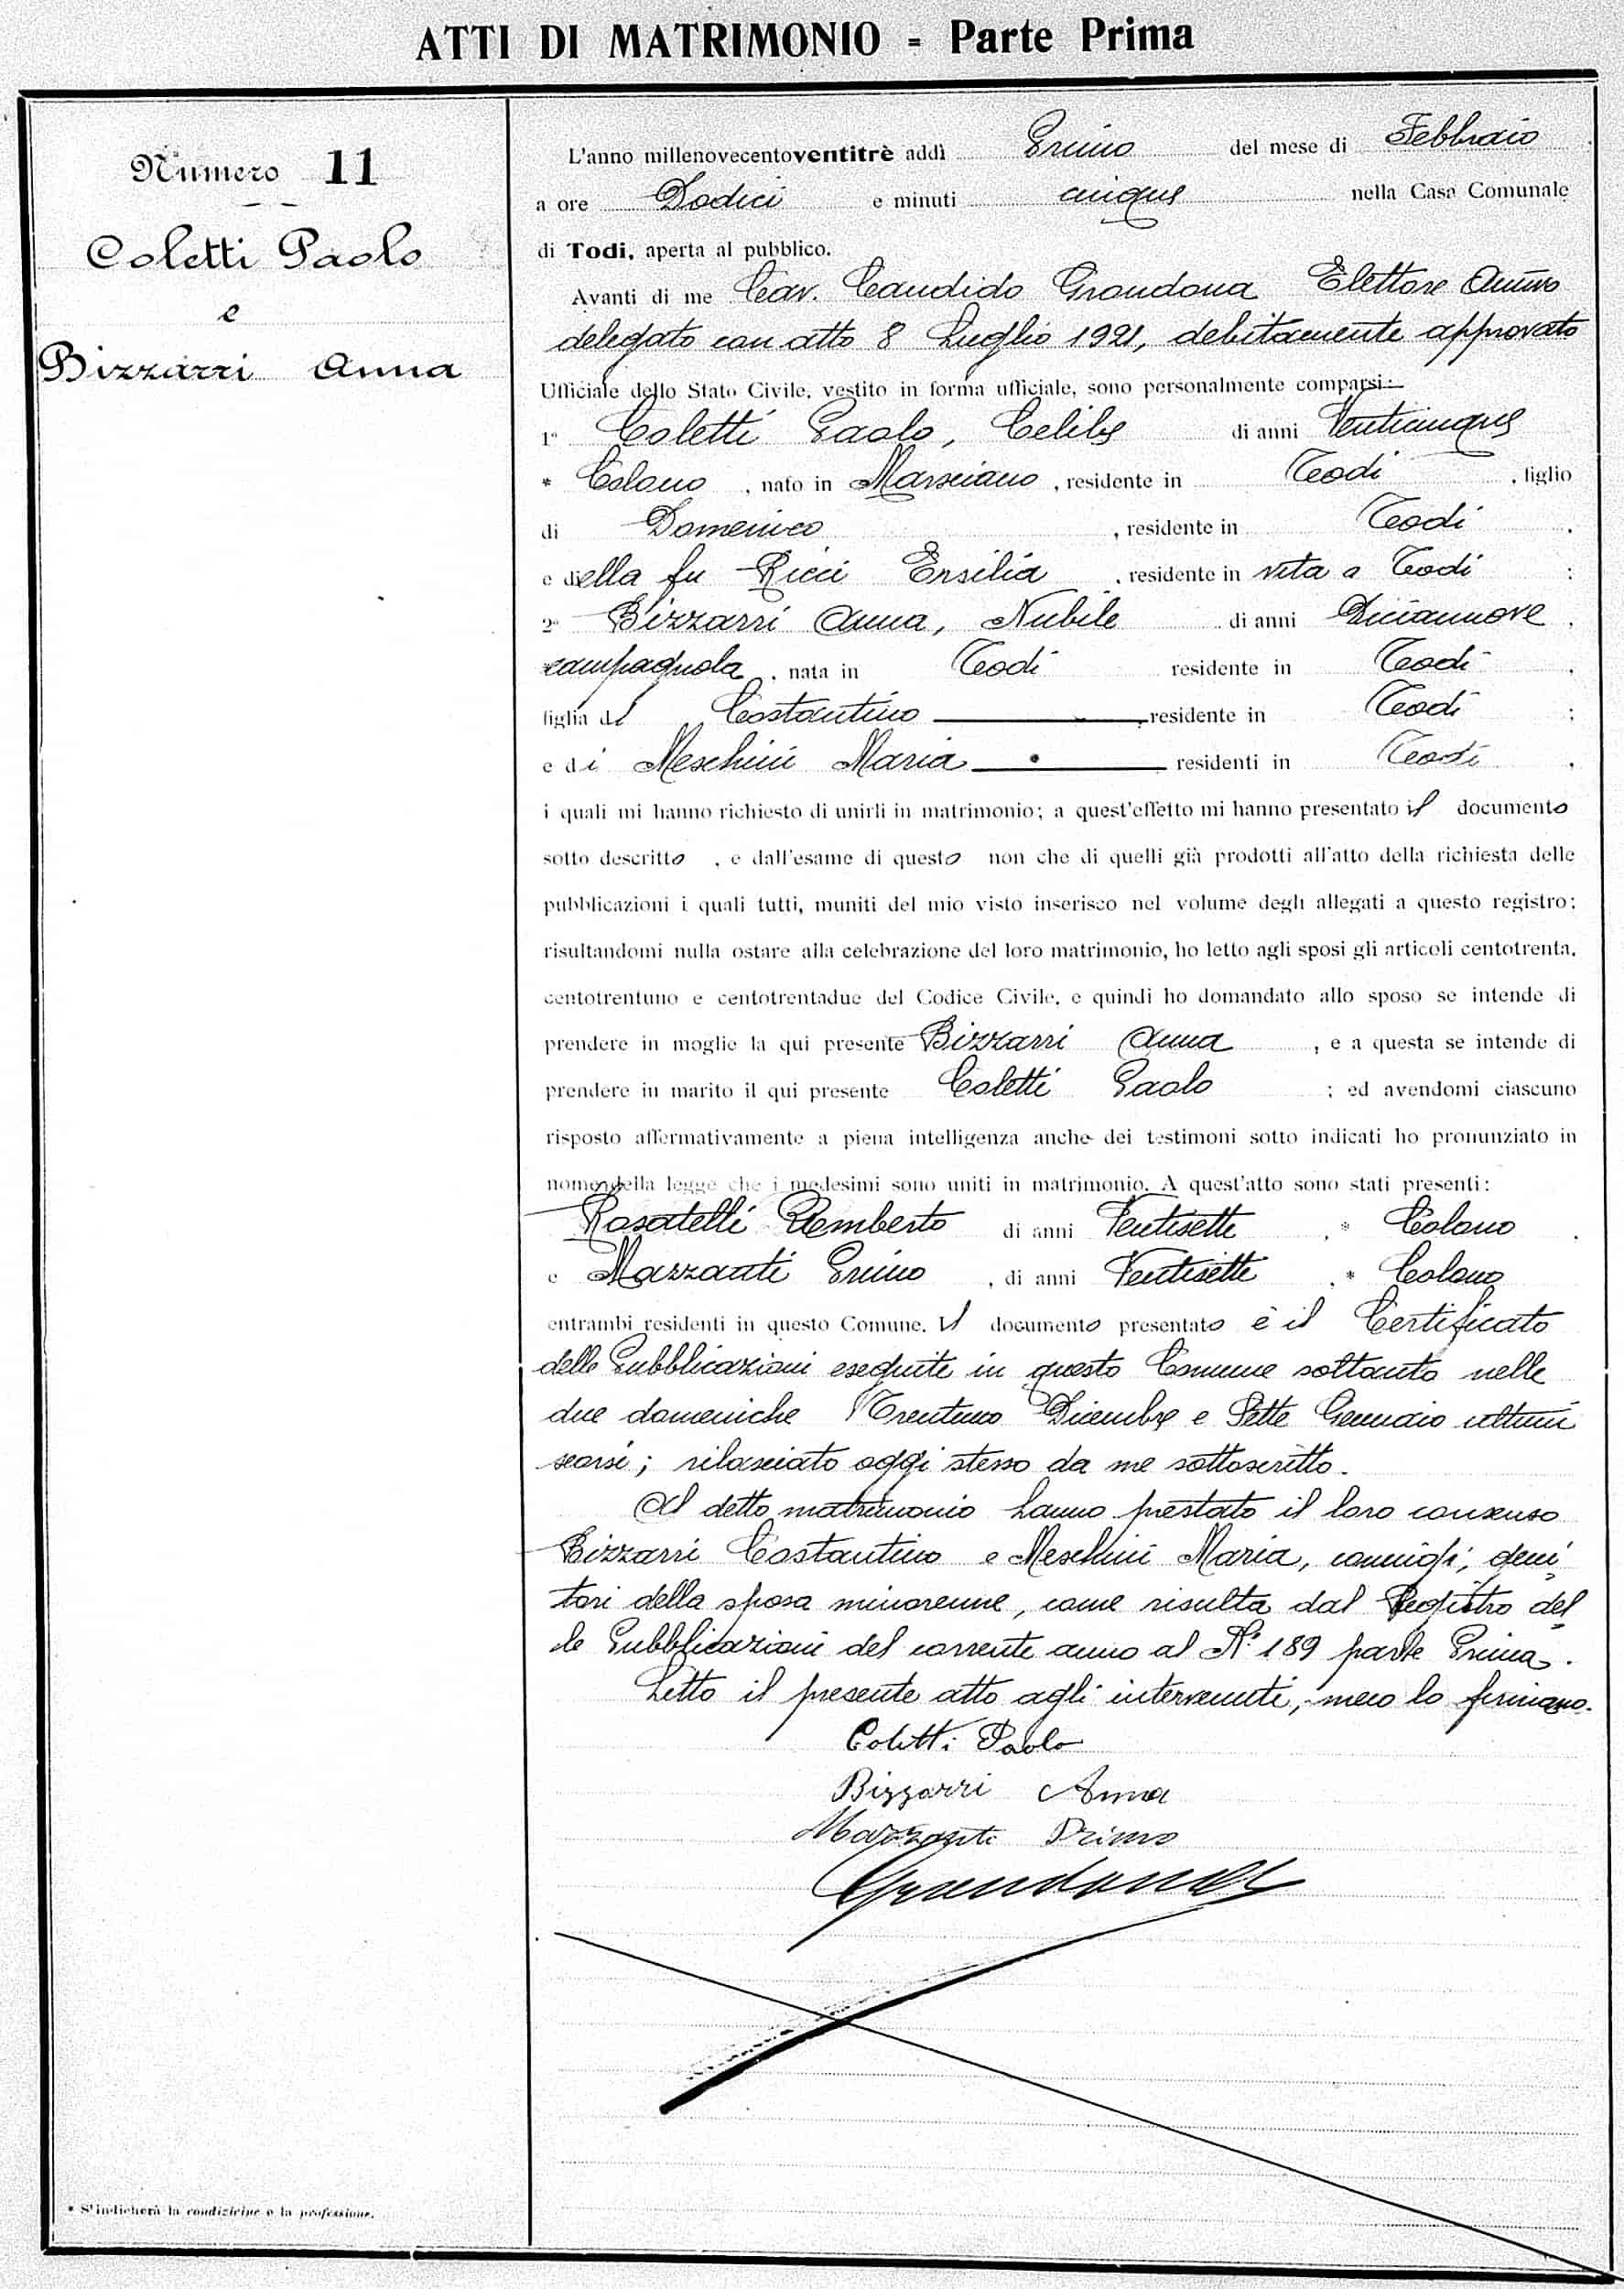 ATTI DI MATRIMONIO - Parte Prima
Numero 11
Coletti Paolo
e
Bizzarri Anna
L'anno millenovecentoventitrè addì Primo del mese di Febbraio
a ore Dodici e minuti cinque nella Casa Comunale
di Todi, aperta al pubblico.
Avanti di me Cav. Candido Grondona Elettore Ammvo
delegato con atto 8 Luglio 1921, debitamente approvato
Ufficiale dello Stato Civile, vestito in forma ufficiale, sono personalmente comparsi:
1° Coletti Paolo, Celibe di anni Venticinque
* Colono, nato in Marsciano, residente in Todi, figlio
di Domenico, residente in Todi,
e della fu Ricci Ersilia, residente in vita a Todi;
2° Bizzarri Anna, Nubile di anni Diciannove,
campagnola, nata in Todi residente in Todi,
figlia di Costantino, residente in Todi;
e di Meschini Maria residenti in Todi,
i quali mi hanno richiesto di unirli in matrimonio; a quest'effetto mi hanno presentato il documento
sotto descritto, e dall'esame di questo non che di quelli già prodotti all'atto della richiesta delle
pubblicazioni i quali tutti, muniti del mio visto inserisco nel volume degli allegati a questo registro;
risultandomi nulla ostare alla celebrazione del loro matrimonio, ho letto agli sposi gli articoli centotrenta,
centotrentuno e centotrentadue del Codice Civile, e quindi ho domandato allo sposo se intende di
prendere in moglie la qui presente Bizzarri Anna, e a questa se intende di
prendere in marito il qui presente Coletti Paolo; ed avendomi ciascuno
risposto affermativamente a piena intelligenza anche dei testimoni sotto indicati ho pronunziato in
nome della legge che i medesimi sono uniti in matrimonio. A quest'atto sono stati presenti:
Rosatelli Remberto di anni Ventisette, * Colono.
e Mazzanti Primo, di anni Ventisette, * Colono
entrambi residenti in questo Comune. Il documento presentato è il Certificato
delle Pubblicazioni eseguite in questo Comune soltanto nelle
due domeniche Trentuno Dicembre e Sette Gennaio ultimi
scorsi; rilasciato oggi stesso da me sottoscritto.
Al detto matrimonio hanno prestato il loro consenso
Bizzarri Costantino e Meschini Maria, coniugi, geni
tori della sposa minorenne, come risulta dal Registro del
le Pubblicazioni del corrente anno al N° 189 parte Prima.
Letto il presente atto agli intervenuti, meco lo firmano.
Coletti Paolo
Bizzarri Anna
Mazzanti Primo
Grondona
* S'indicherà la condizione o la professione.